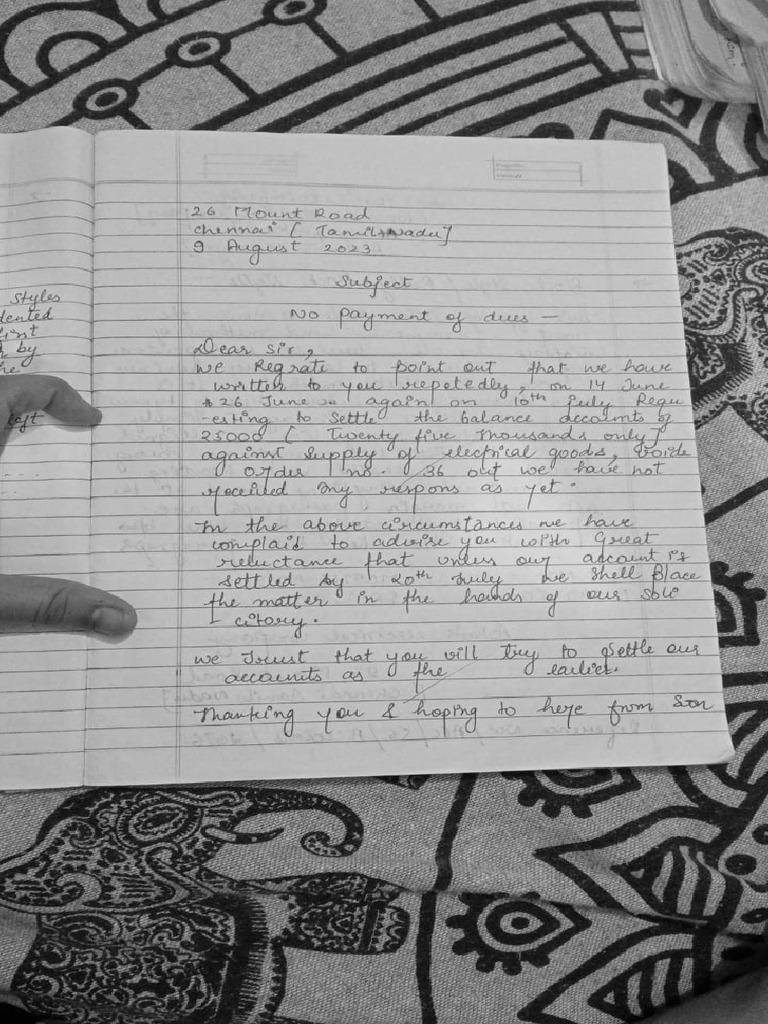 26 Mount Road
chennai [ Tamilnadu]
9 August 2023
Subject
No payment of dues —
Dear Sir,
we Regrate to point out that we have
written to you repetedly, on 14 June
& 26 June .. again on 10th July Requ
-esting to settle the balance accounts of
25000 [ Twenty five thousands only]
against supply of electrical goods, Voide
order no. 36 out we have not
received any respons as yet.
In the above circumstances we have
complaid to advise you with Great
reluctance that unless our account is
settled by 20th July we shell place
the matter in the hands of our soli
- citory.
we Trust that you will try to settle our
accounts as the earlier.
Thanking you & hoping to here from Son
Styles
dented
by
left